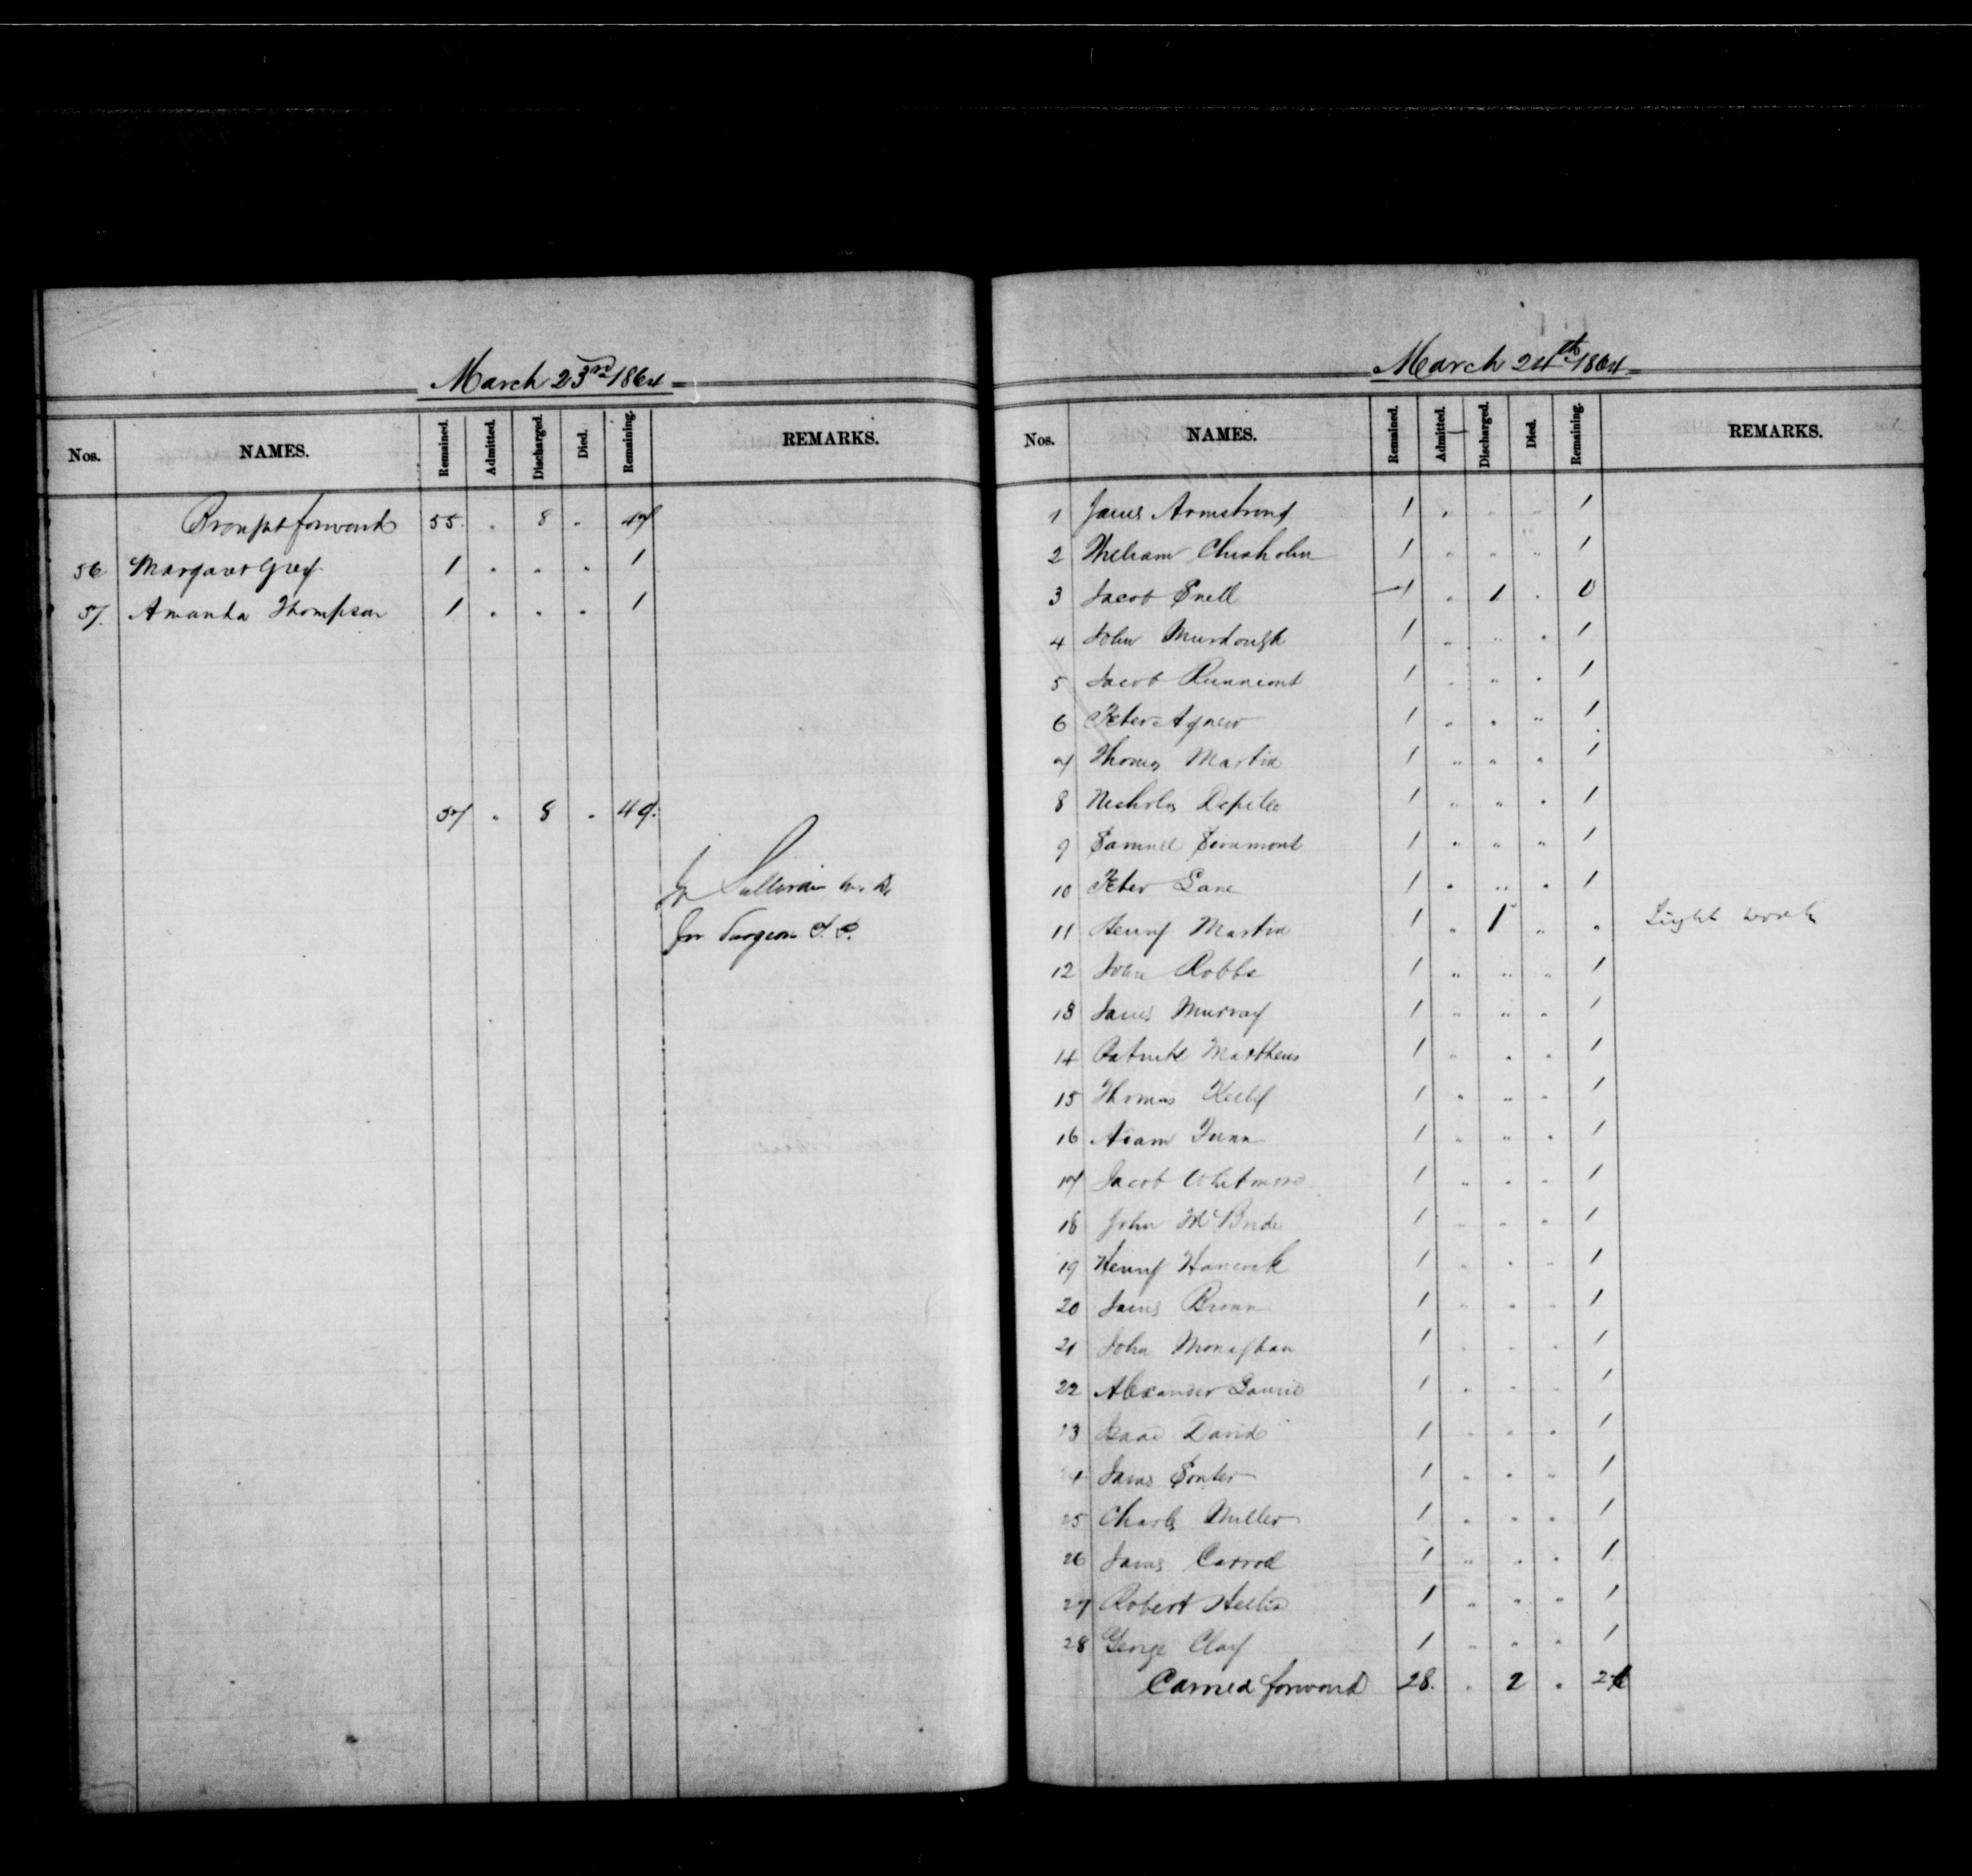 March 23rd 1864
Nos. NAMES. Remained. Admitted. Discharged. Died. Remaining. REMARKS.
Brought forward 55 . 8 . 47
56 Margaret Grey 1 . . . 1
57. Amanda Thompson 1 . . . 1
57 . 8 . 49.
Sullivan M. D.
for Surgeon P. P.
March 24th 1864
Nos. NAMES. Remained. Admitted. Discharged. Died. Remaining. REMARKS.
1 James Armstrong 1 . . . 1
2 William Chisholm 1 . . . 1
3 Jacob Snell 1 . 1 . 0
4 John Murdough 1 . . . 1
5 Jacob 1 . . . 1
6 Peter Agnew 1 . . . 1
7 Thomas Martin 1 . . . 1
8 Nicholas 1 . . . 1
9 Samuel 1 . . . 1
10 Peter Lane 1 . . . 1
11 Henry Martin 1 . 1 . . Light work
12 John Robbs 1 . . . 1
13 James Murray 1 . . . 1
14 Patrick Matthews 1 . . . 1
15 Thomas Kelly 1 . . . 1
16 Adam 1 . . . 1
17 Jacob Whitmore 1 . . . 1
18 John McBride 1 . . . 1
19 Henry Hancock 1 . . . 1
20 James Brown 1 . . . 1
21 John Monaghan 1 . . . 1
22 Alexander Laurie 1 . . . 1
23 Isaac David 1 . . . 1
24 James Souter 1 . . . 1
25 Charles Miller 1 . . . 1
26 James Carrol 1 . . . 1
27 Robert 1 . . . 1
28 George Clay 1 . . . 1
Carried forward 28. . 2 . 26